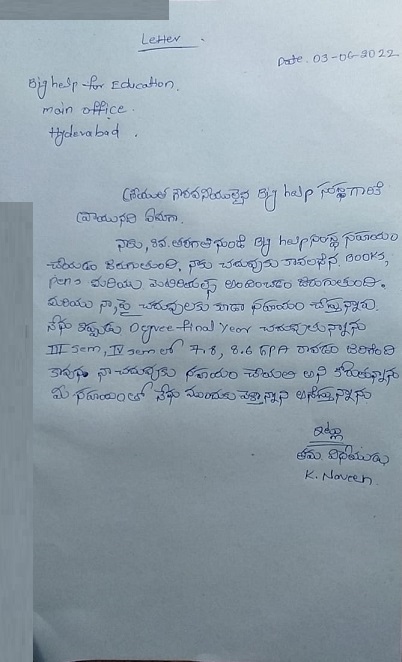 Letter .
Date. 03-06-2022
Big help for Education.
main office.
Hyderabad .
గౌరవనీయులైన Big help సంస్థ గారికి
వ్రాయునది ఏమనగా.
నాకు, 6వ. తరగతి నుండి Big help సంస్థ సహాయం
చేయడం జరుగుతుంది. నాకు చదువుకు కావలసిన BOOKS,
Pens మరియు మెటిరియల్స్ అందించడం జరుగుతుంది.
మరియు నా, పై చదువులకు కూడా సహాయం చేస్తున్నారు.
నేను ఇప్పుడు Degree-final year చదువుతున్నాను
III Sem, IV Sem లో 7.8, 8.6 GPA రావడం జరిగింది
కావున నా చదువుకు సహాయం చేయాలి అని కోరుతున్నాను
మీ సహాయంతో నేను ముందుకు వెళ్తాన్నాని అనిస్తున్నాను.
ఇట్లు
తమ విధేయుడు
K. Naveen